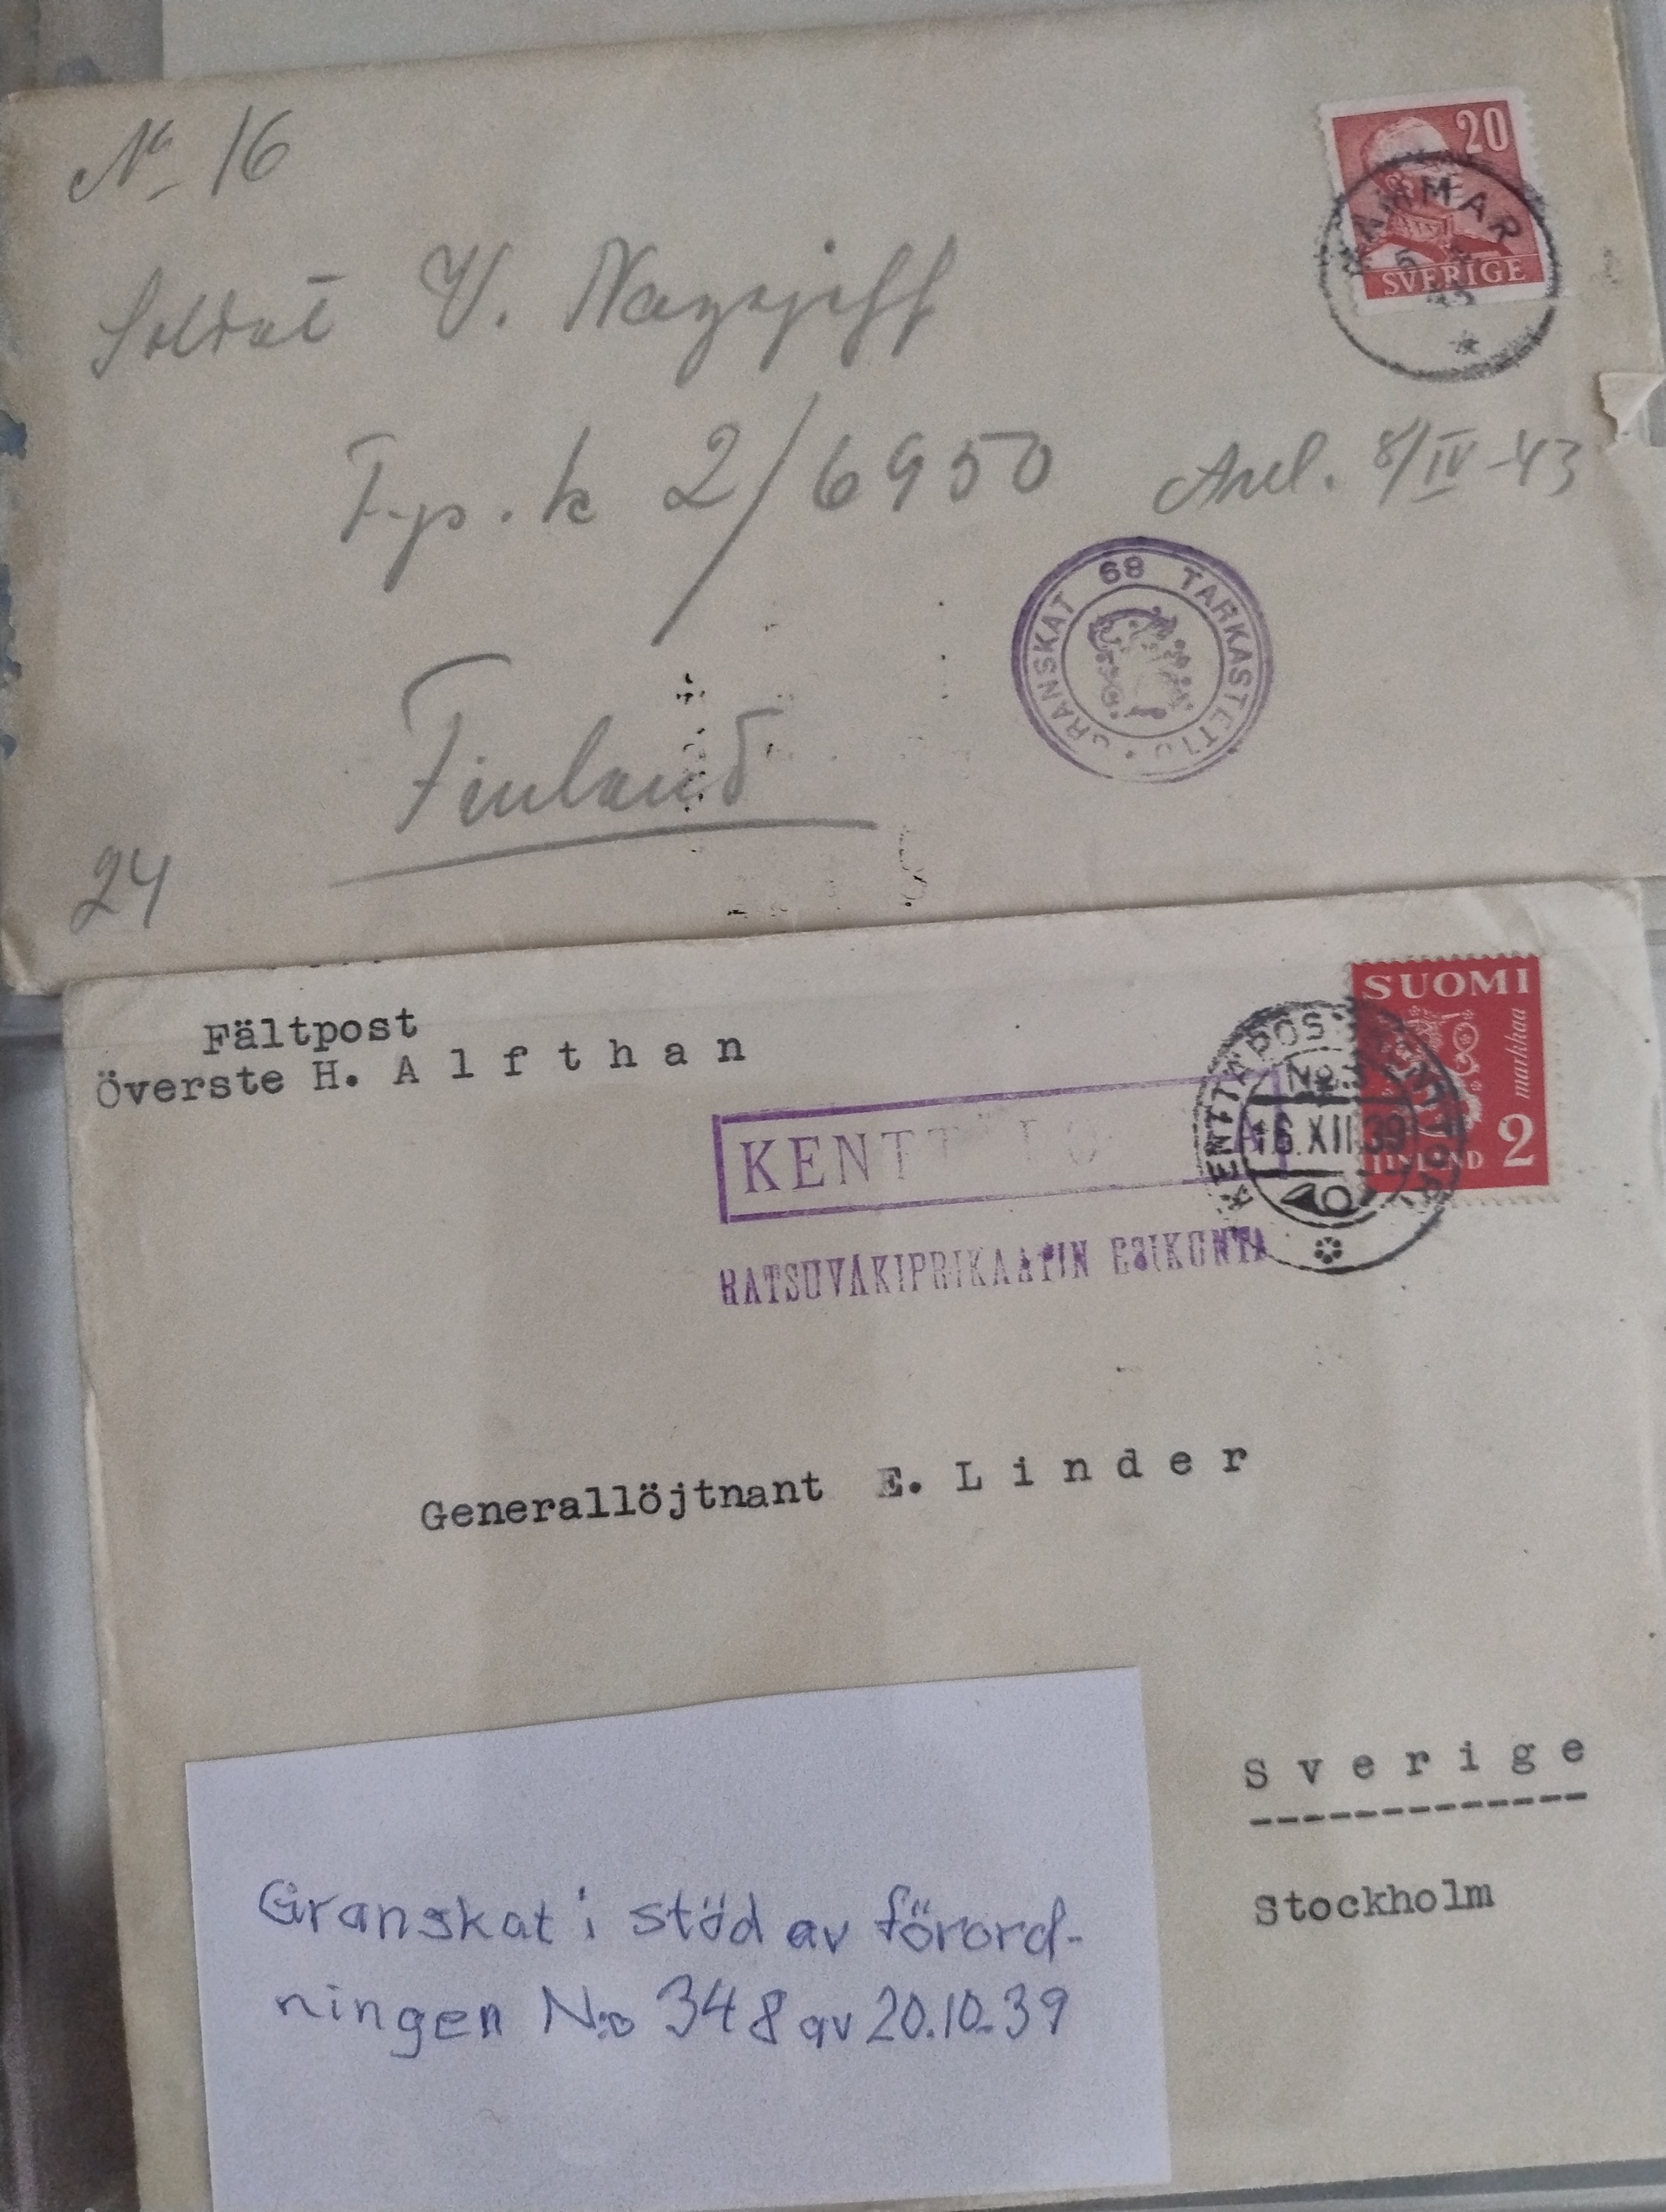 No 16
20
SVERIGE
Soldat V.
F.p.k 2/6950
8/IV-43
GRANSKAT 68 TARKASTETTU
Finland
24
Fältpost
Överste H. Alfthan
SUOMI
markkaa
2
FINLAND
No. 3
16.XII.39
KENTT
RATSUVÄKIPRIKAATIN ESIKUNTA
Generallöjtnant E. Linder
Sverige
Stockholm
Granskat i stöd av förord-
ningen No 348 av 20.10.39